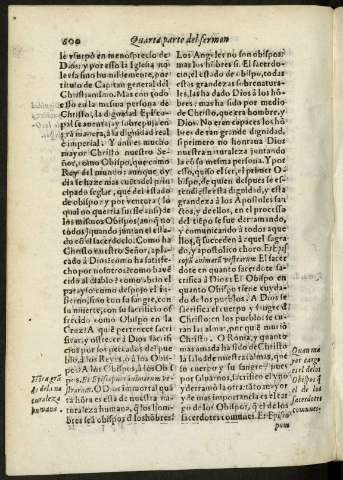 600
Quarta parte del sermon
le vsurpò en menosprecio de
Dios: y por esso la Iglesia no
le vsa sino humilmente, por
titulo de Capitan general del
Christianismo. Mas con todo
esso en la misma persona de
Christo, la dignidad Episco-
pal se auentaja y sobrepuja en
grã manera, à la dignidad real
è imperial: Y assi es mucho
mayor Christo nuestro Se-
ñor, como Obispo, que como
Rey del mundo: aunque oy
dia se haze mas cuẽta del prin
cipado seglar, que del estado
de obispo: y por ventura (lo
qual no querria fuesse assi) de
los mismos Obispos (aunq̃ no
todos) quando juntan el esta-
do cõ el sacerdocio. Como ha
Christo nuestro Señor, apla-
cado à Dios? como ha satisfe-
cho por nosotros? como ha vẽ
cido al diablo? como abrio el
parayso? como despojò el in-
fierno, sino con su sangre, con
su muerte, con su sacrificio of
frecido como Obispo en la
Cruz? A quiẽ pertenece sacri
ficar, y offrecer à Dios sacrifi
cios por los peccados del pue-
blo, à los Reyes, ò à los Obis-
pos? A los Obispos, à los Obis
pos. Et Episcopum animarum ve-
strarum. O Dios immortal quã
ta hõra es esta de nuestra na-
turaleza humana, q̃ los hom-
bres seã obispos de los hõbres?
Los Angeles no son obispos,
mas los hõbres si. El sacerdo-
cio, el estado de obispo, todas
estas grandezas sobrenatura-
les, las ha dado Dios à los hõ-
bres: mas ha sido por medio
de Christo, que era hombre, y
Dios. No eran capaces los hõ
bres de tan grande dignidad,
si primero no honrana Dios
nuestra naturaleza juntando
la cõ so mesma persona. Y por
esso, quiso el ser, el primer O-
bispo, de quien despues se es-
tendiesse esta dignidad, y esta
grandeza à los Apostoles san-
ctos, y dellos, en el processo
del tiẽpo se fue derramando,
y comunicando à todos aque
llos, q̃ succeden à aquel sagra-
do, y apostolico choro. Et Epis
copũ animarũ vestrarum. El sacer
dote en quanto sacerdote sa-
crifica à Dios: El Obispo en
quanto Obispo tiene cuyda-
do de los pueblos. A Dios se
sacrifica el cuerpo y sangre d̃
Christo: en los pueblos se cu-
ran las almas, por que murio
Christo. O Roma, y quanto
mas amada ha sido de Christo
la salod de nuestras almas, que
su cuerpo y su sangre? pues
por saluarnos, sacrifico el vno,
y derramò la otra: tãto mayor
or es mas importante es el car
go de los Obispos, q̃ el de los
sacerdotes comunes. Et Episco
pum
Hõra grã
de de la na
turaleza
humana.
Quan ma
yor cargo
es el de los
Obispos q̃
el de los
sacerdotes
comunes.